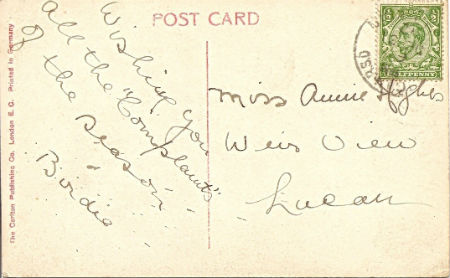 POST CARD
Wishing you
all the "Complaints"
of the season
Birdie
Miss Annie Hughes
Weir View
Lucan
The Carlton Publishing Co. London E. C. Printed in Germany